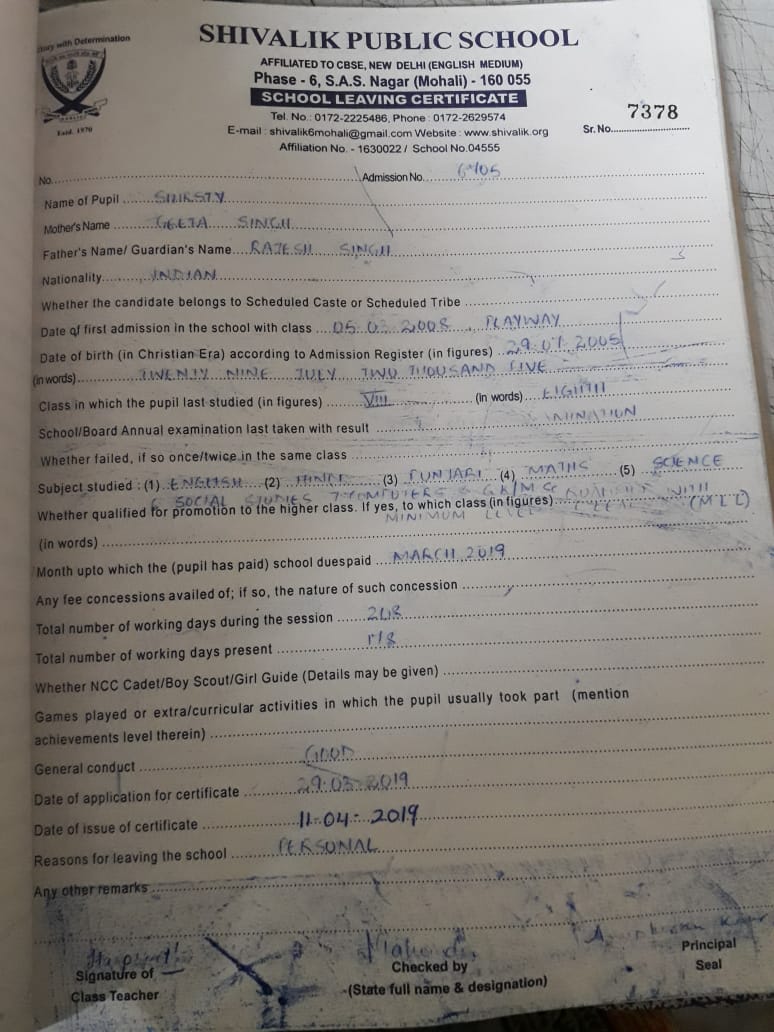 ctory with Determination
Estd. 1970
SHIVALIK PUBLIC SCHOOL
AFFILIATED TO CBSE, NEW DELHI (ENGLISH MEDIUM)
Phase - 6, S.A.S. Nagar (Mohali) - 160 055
SCHOOL LEAVING CERTIFICATE
Tel. No.: 0172-2225486, Phone : 0172-2629574
E-mail : shivalik6mohali@gmail.com Website : www.shivalik.org
Affiliation No. - 1630022 / School No.04555
Sr. No. 7378
No. Admission No.
Name of Pupil
Mother's Name GEETA SINGH
Father's Name/ Guardian's Name RAJESH SINGH
Nationality INDIAN
Whether the candidate belongs to Scheduled Caste or Scheduled Tribe
Date of first admission in the school with class 05.03.2008, PLAYWAY
Date of birth (in Christian Era) according to Admission Register (in figures) 29.07.2005
(in words) TWENTY NINE JULY TWO THOUSAND FIVE
Class in which the pupil last studied (in figures) VIII (in words) EIGHTH
School/Board Annual examination last taken with result
Whether failed, if so once/twice in the same class
Subject studied : (1) ENGLISH (2) HINDI (3) PUNJABI (4) MATHS (5) SCIENCE
6 SOCIAL STUDIES 7 COMPUTERS 8 GK/M.Sc
Whether qualified for promotion to the higher class. If yes, to which class (in figures) WITH
MINIMUM LEVEL (MLL)
(in words)
Month upto which the (pupil has paid) school duespaid MARCH, 2019
Any fee concessions availed of; if so, the nature of such concession
Total number of working days during the session 218
Total number of working days present
Whether NCC Cadet/Boy Scout/Girl Guide (Details may be given)
Games played or extra/curricular activities in which the pupil usually took part (mention
achievements level therein)
General conduct GOOD
Date of application for certificate 29.03.2019
Date of issue of certificate 11-04-2019
Reasons for leaving the school PERSONAL
Any other remarks
Signature of
Class Teacher
Checked by
(State full name & designation)
Principal
Seal